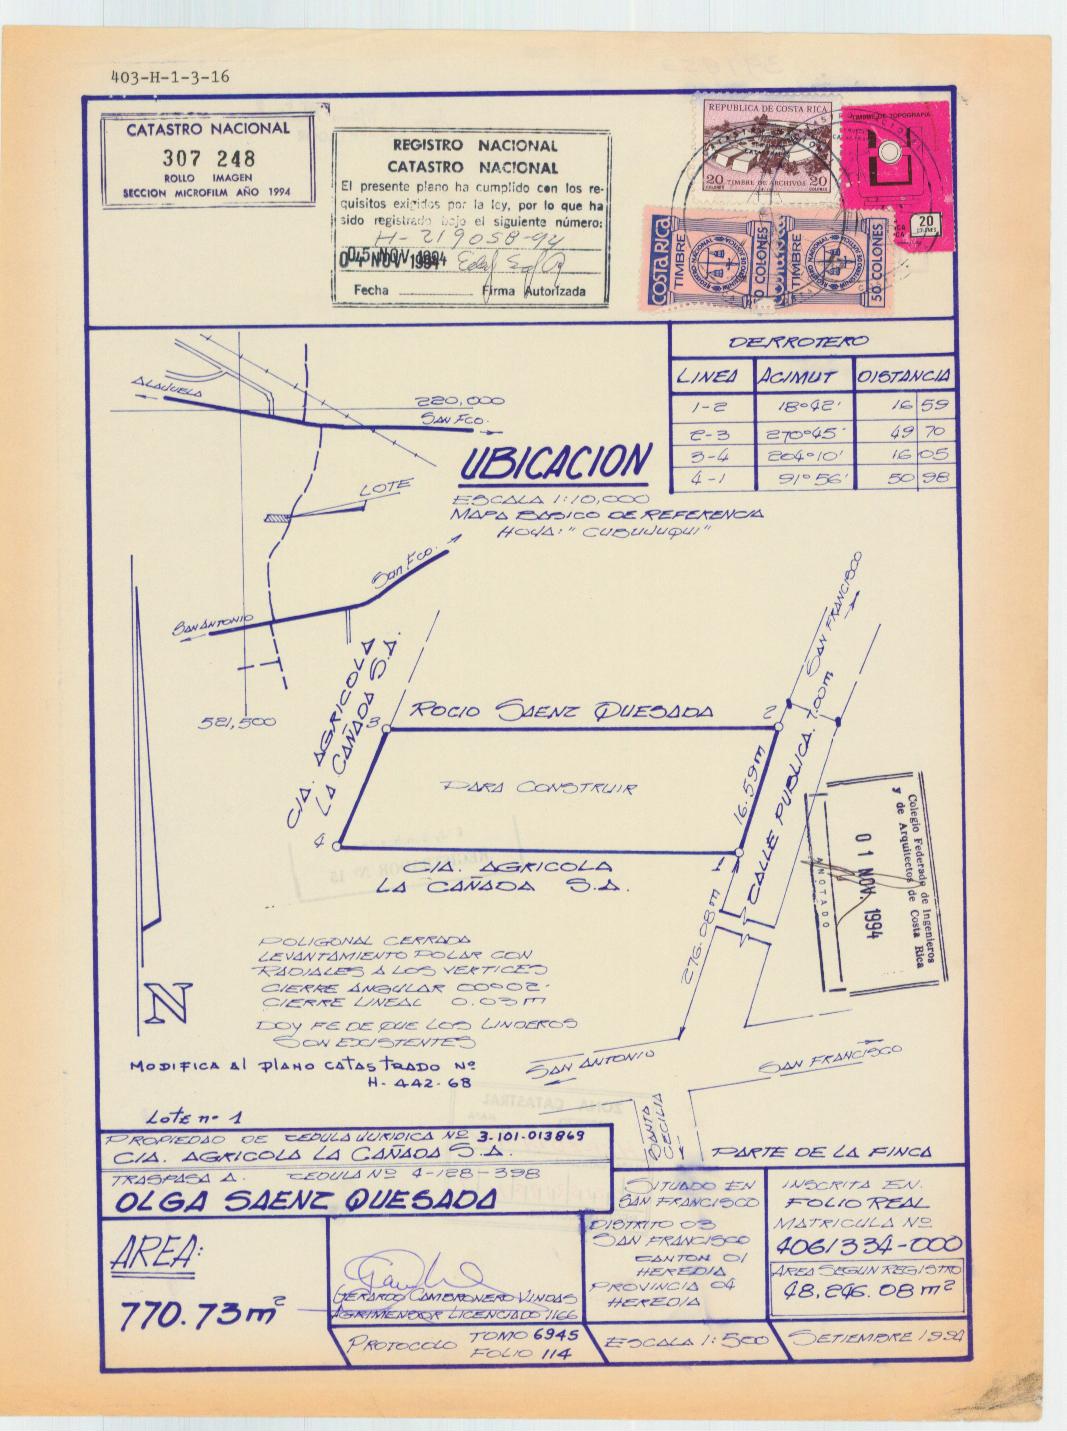 403-H-1-3-16
CATASTRO NACIONAL
307 248
ROLLO IMAGEN
SECCION MICROFILM AÑO 1994
REGISTRO NACIONAL
CATASTRO NACIONAL
El presente plano ha cumplido con los re-
quisitos exigidos por la ley, por lo que ha
sido registrado bajo el siguiente número:
H-219058-94
NOV 1994
Fecha Firma Autorizada
REPUBLICA DE COSTA RICA
20 TIMBRE DE ARCHIVOS 20
COLONES COLONES
TIMBRE DE TOPOGRAFIA
20
COSTA RICA
TIMBRE
REGISTRO NACIONAL
50 COLONES
TIMBRE
REGISTRO NACIONAL
50 COLONES
DERROTERO
LINEA ACIMUT DISTANCIA
1-2 18°42' 16 59
2-3 270°45' 49 70
3-4 204°10' 16 05
4-1 91°56' 50 98
ALAJUELA
220,000
SAN FCO.
UBICACION
ESCALA 1:10,000
MAPA BASICO DE REFERENCIA
HOJA: "CUBUJUQUI"
LOTE
San Fco.
SAN ANTONIO
521,500
CIA. AGRICOLA
LA CAÑADA S.A.
3
ROCIO SAENZ QUESADA
2
SAN FRANCISCO
PARA CONSTRUIR
16.59m
CALLE PUBLICA. 7.00m
4
1
CIA. AGRICOLA
LA CAÑADA S.A.
276.08m
Colegio Federado de Ingenieros
y de Arquitectos de Costa Rica
01 NOV. 1994
ANOTADO
POLIGONAL CERRADA
LEVANTAMIENTO POLAR CON
RADIALES A LOS VERTICES
CIERRE ANGULAR 00°02'
CIERRE LINEAL 0.03m
DOY FE DE QUE LOS LINDEROS
SON EXISTENTES
N
MODIFICA Al PLANO CATASTRADO Nº
H-442-68
SAN ANTONIO
SAN FRANCISCO
SANTA
CECILIA
LOTE nº 1
PARTE DE LA FINCA
PROPIEDAD DE CEDULA JURIDICA Nº 3-101-013869
CIA. AGRICOLA LA CAÑADA S.A.
TRASPASA A. CEDULA Nº 4-128-398
OLGA SAENZ QUESADA
SITUADO EN
SAN FRANCISCO
DISTRITO 03
SAN FRANCISCO
CANTON 01
HEREDIA
PROVINCIA 04
HEREDIA
INSCRITA EN.
FOLIO REAL
MATRICULA Nº
4061334-000
AREA SEGUN REGISTRO
48,246.08 m²
AREA:
770.73m²
GERARDO CAMBRONERO VINDAS
AGRIMENSOR LICENCIADO 1166
PROTOCOLO TOMO 6945
FOLIO 114
ESCALA 1:500
SETIEMBRE 1994